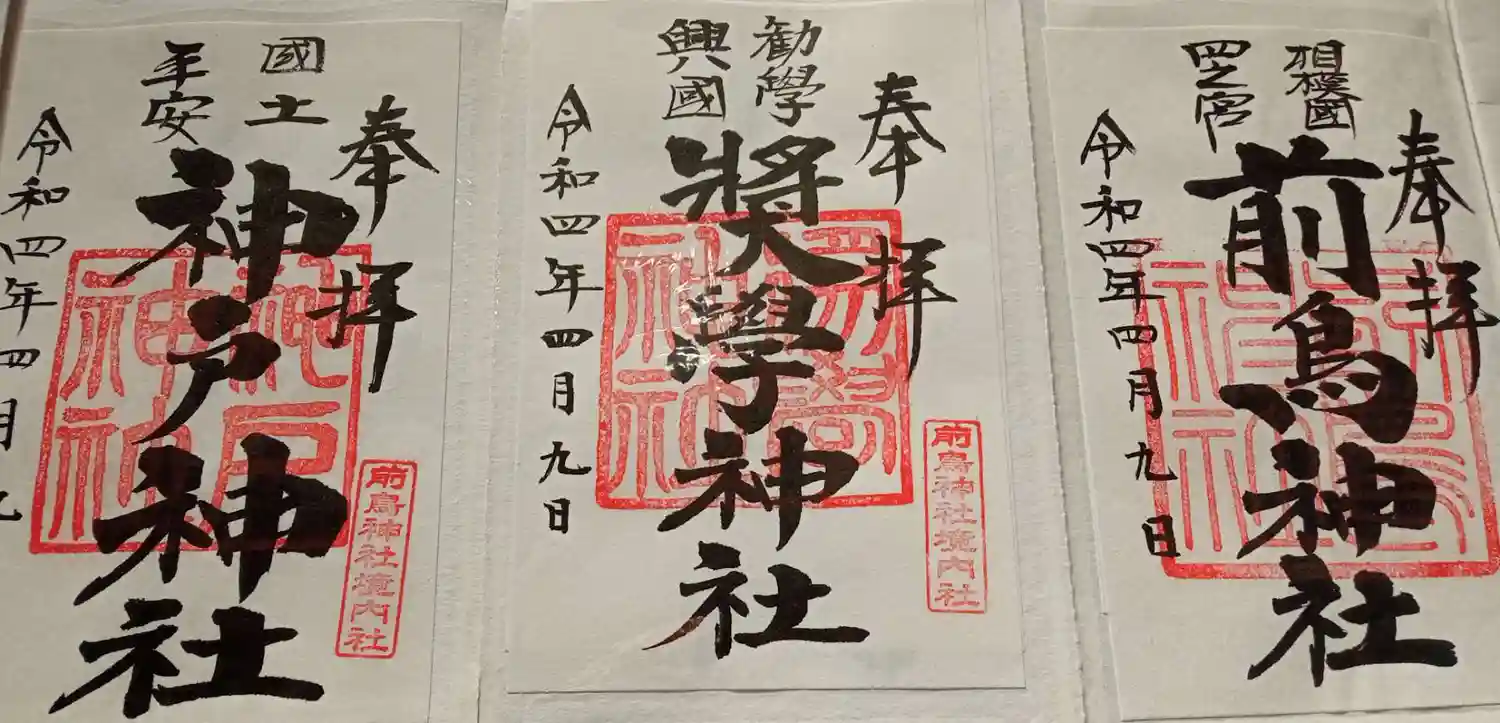 奉拝
相模國
四之宮
前鳥神社
令和四年四月九日
奉拝
勸學
興國
奬學神社
令和四年四月九日
前鳥神社境内社
奉拝
國土
平安
神戸神社
令和四年四月九
前鳥神社境内社